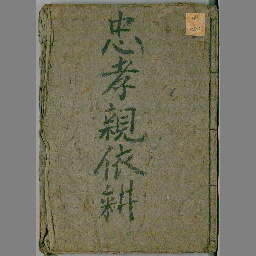 忠孝親依耕